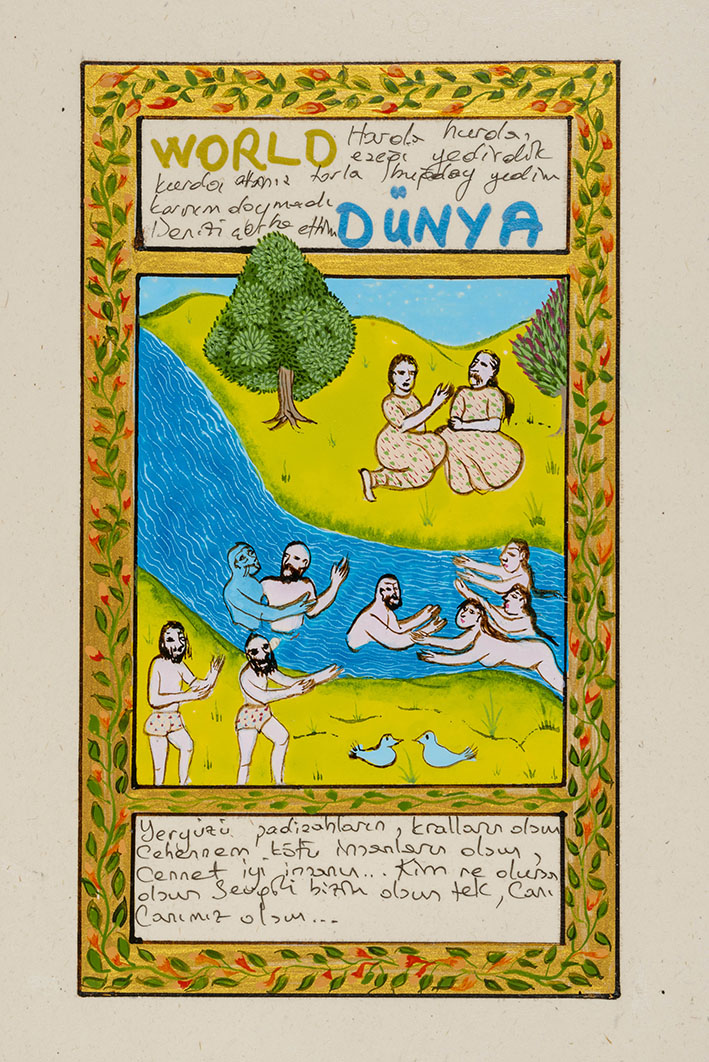 WORLD Harda hurda,
yedirdik
tarla buğday yedim
karnım doymadı
Denizi ettim DÜNYA
Yeryüzü padişahların, kralların olsun
Cehennem, kötü insanların olsun,
Cennet iyi insanın... Kim ne olursa
olsun Sevgili bizim olsun tek, Canı
Canımız olsun...